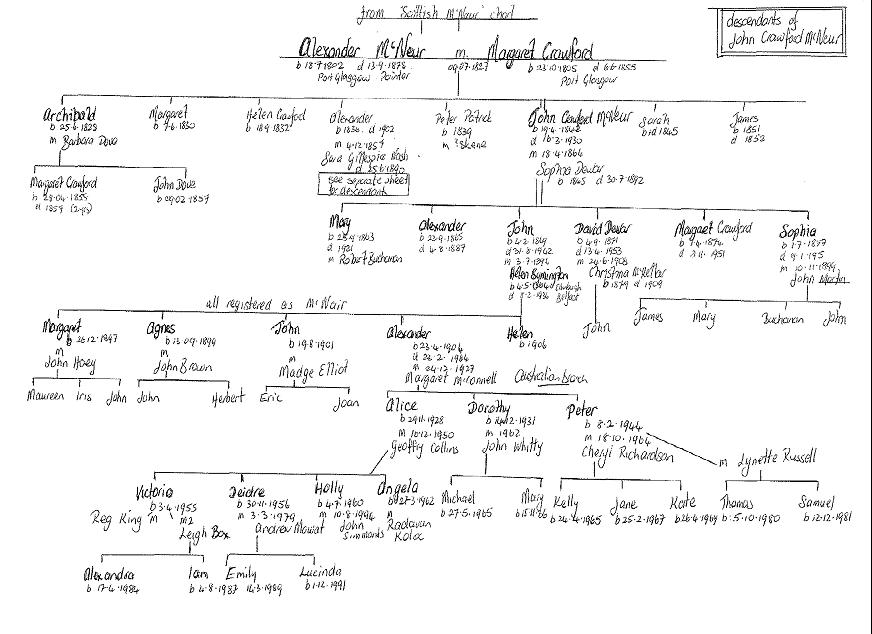 from 'Scottish McNeur' chart
descendants of
John Crawford McNeur
Alexander McNeur m. Margaret Crawford
b 18.7.1802 d 13.9.1878 09.07.1827 b 23.10.1805 d 6.6.1855
Port Glasgow Painter Port Glasgow
Archibald
b 25.6.1828
m Barbara Dove
Margaret
b 7.6.1830
Helen Crawford
b 18.9.1832
Alexander
b 1836 d 1902
m 4.12.1857
Sara Gillespie Nash
d 25.6.1890
see separate sheet
for descendants
Peter Patrick
b 1839
m ? Skene
John Crawford McNeur
b 19.4.1842
d 16.3.1930
m 18.4.1866
Sophia Dewar
b 1845 d 30.7.1892
Sarah
b+d 1845
James
b 1851
d 1852
Margaret Crawford
b 28.04.1855
d 1859
John Dove
b 09.02.1857
Mary
d 1921
m Robert Buchanan
Alexander
b 22.9.1865
d 4.8.1887
John
b 4.2.1869
d 31.8.1962
m 3.7.1896
Helen Symington
Edinburgh
Belfast
David Dewar
b 4.9.1871
d 13.4.1953
m 24.6.1908
Christina McKellar
b 1879 d 1909
Margaret Crawford
b 7.4.1874
d 2.11.1951
Sophia
b 1.7.1877
m 10.11.1899
John Martin
John
James
Mary
Buchanan
John
all registered as McNair
Margaret
b 26.12.1897
m
John Hoey
Agnes
b 13.09.1899
m
John Brown
John
b 19.8.1901
m
Madge Elliot
Alexander
b 23.4.1904
d 22.2.1984
m 24.12.1927
Margaret McConnell
Helen
b 1906
Australian branch
Maureen Iris John
John Herbert
Eric Joan
Alice
b 29.11.1928
m 16.12.1950
Geoffry Collins
Dorothy
b 24.12.1931
m 1962
John Whitty
Peter
b 8.2.1944
m 18.10.1964
Cheryl Richardson
m Lynette Russell
Victoria
b 3.4.1955
Reg King m m2
Leigh Box
Deidre
b 30.11.1956
m 3.3.1979
Andrew Mowat
Holly
b 4.7.1960
m 10.8.1996
John
Simmonds
Angela
b 27.3.1962
m
Radovan
Kolac
Michael
b 27.5.1965
Mary
Kelly
b 24.4.1965
Jane
b 25.2.1967
Kate
b 26.4.1969
Thomas
b 5.10.1980
Samuel
b 12.12.1981
Alexandra
b 17.4.1984
Iam
b 4.8.1987
Emily
14.3.1989
Lucinda
b 1.12.1991